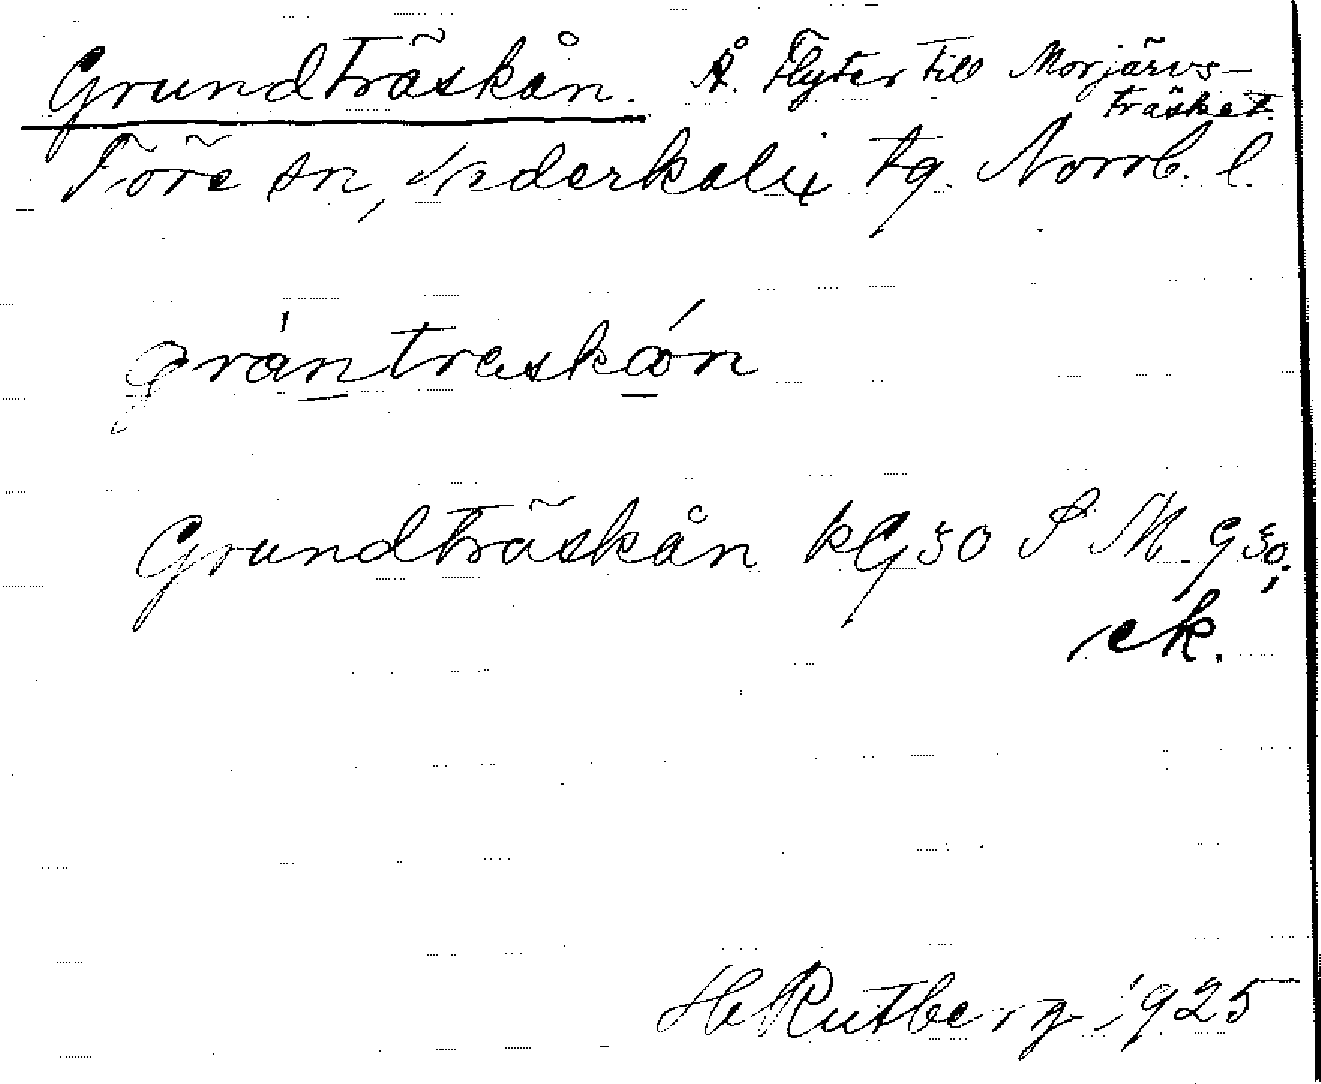 Grundträskån. Å. Flyter till Morjärvs-
träsket.
Töre sn, Nederkalix tg. Norrb. l.
gràntreskán
Grundträskån KG 50 S. M. G 50;
ek.
H Rutberg 1925